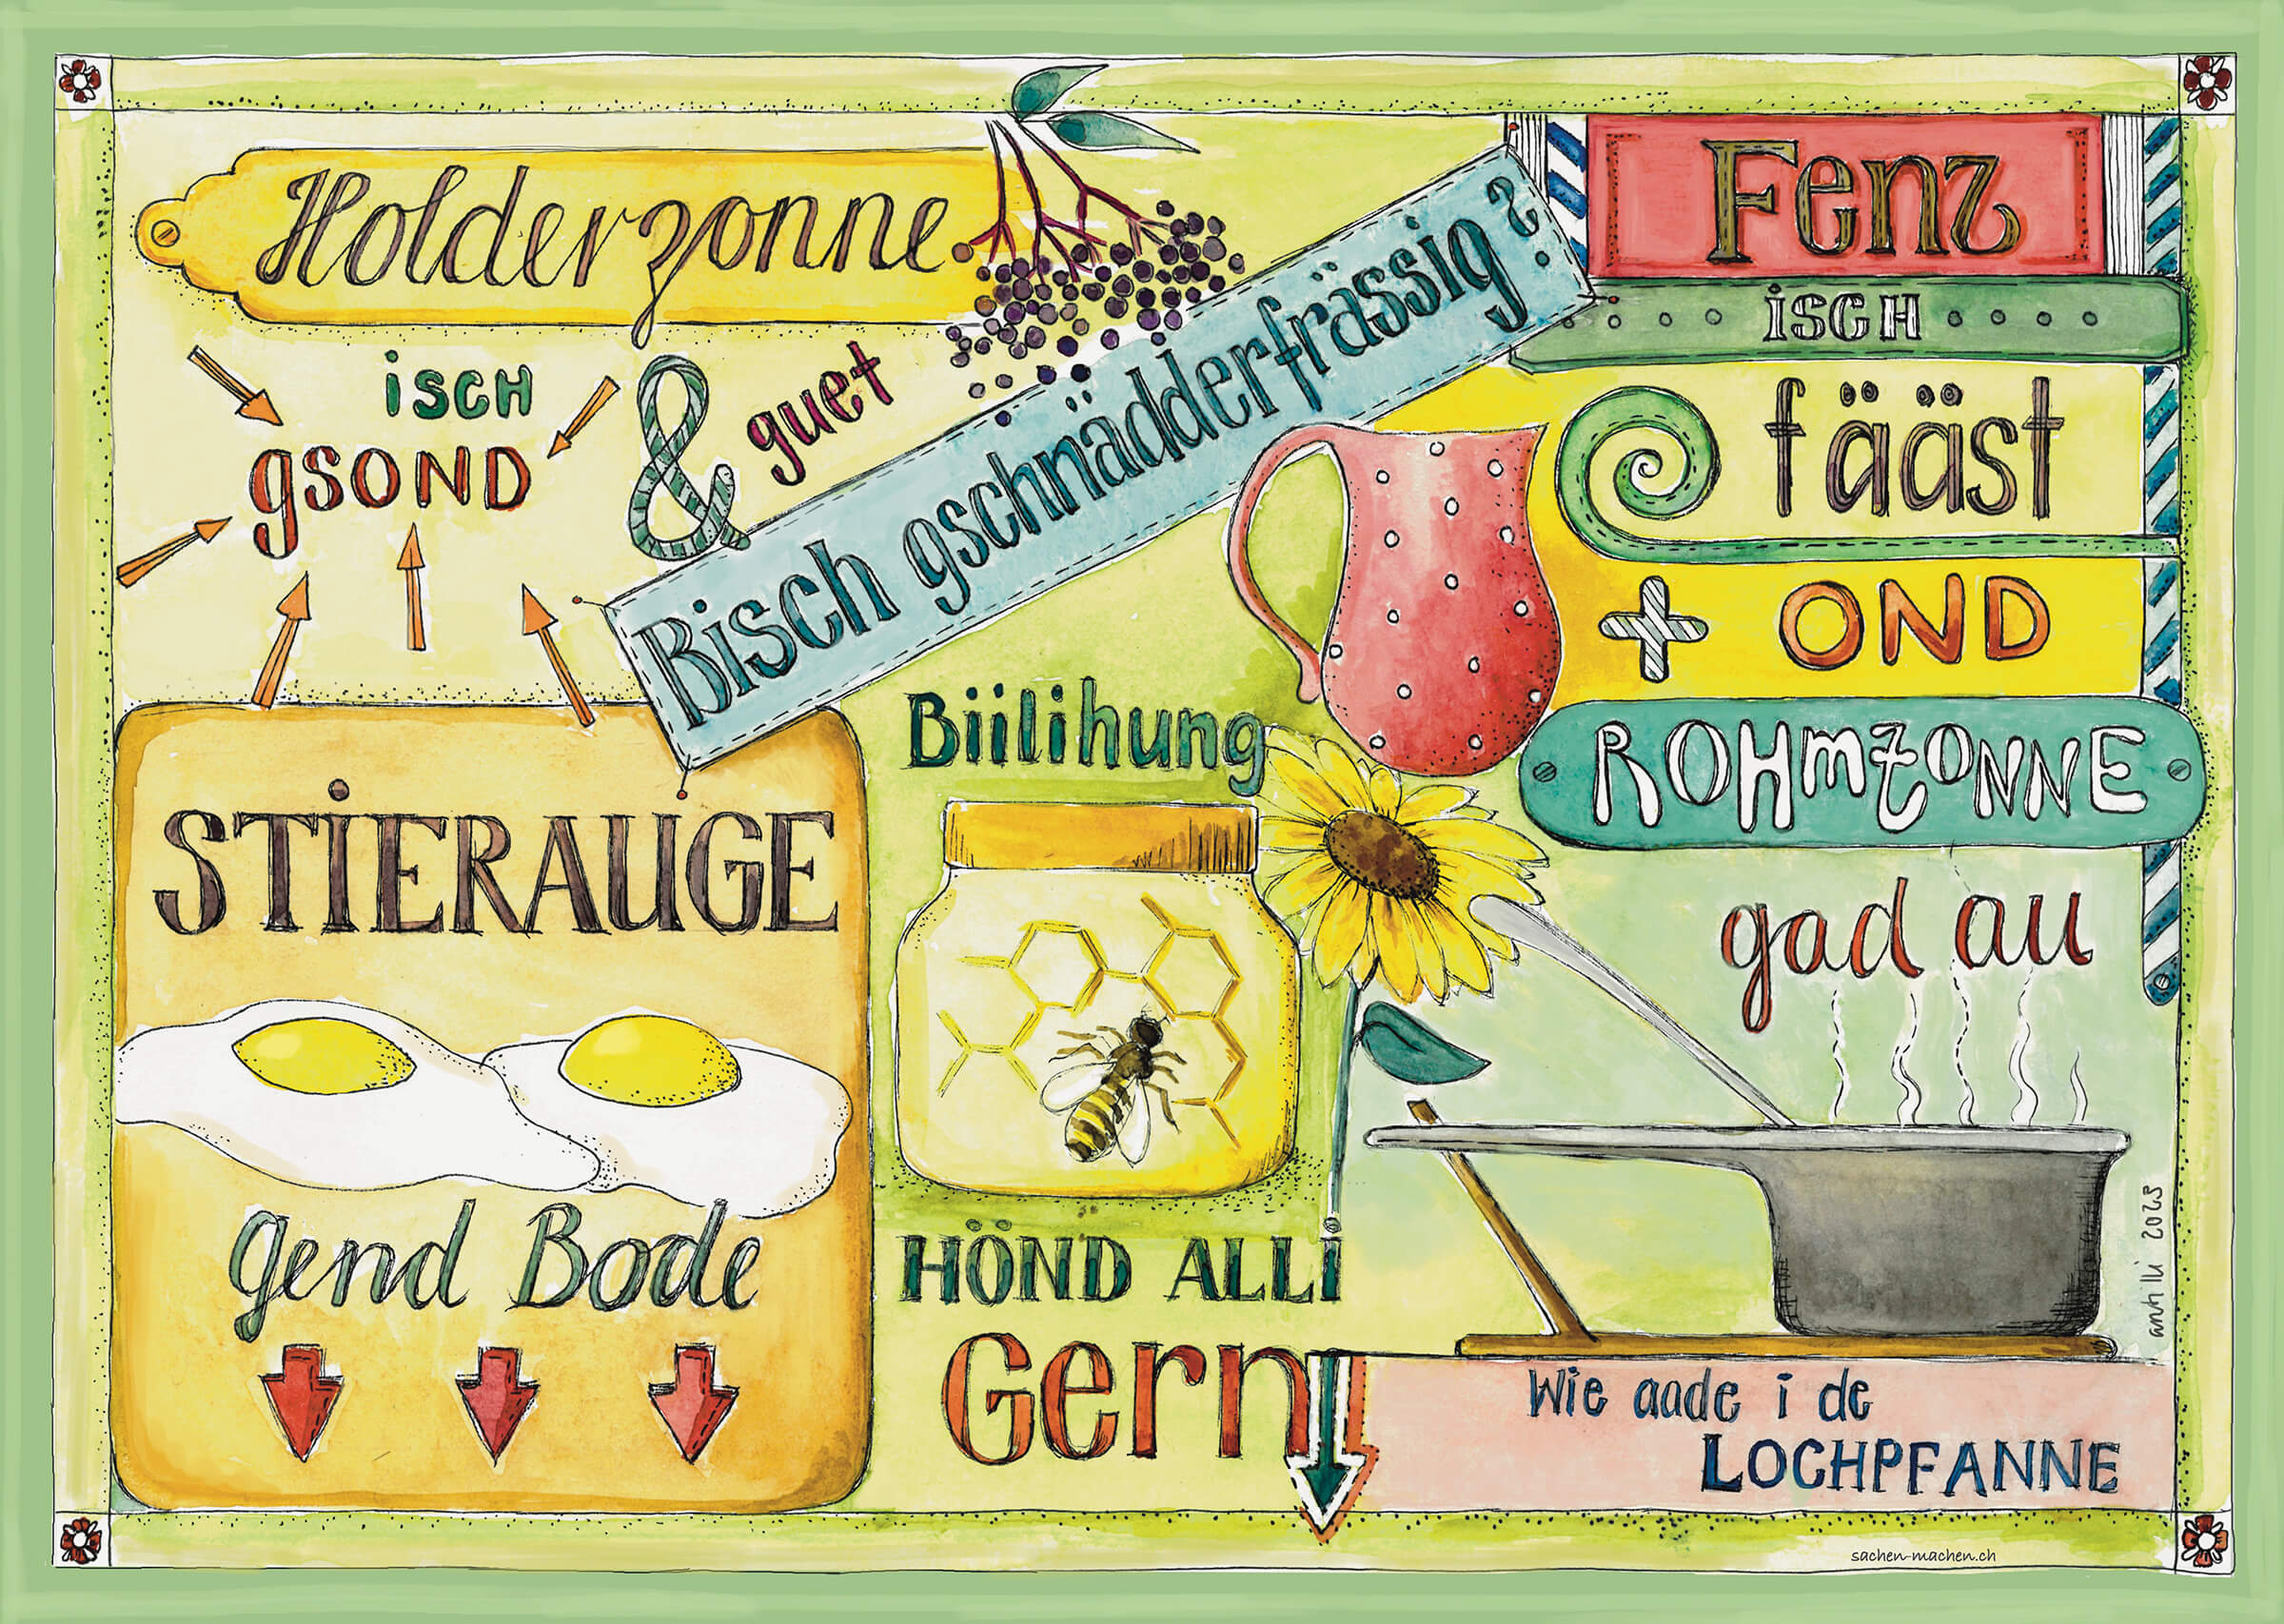 Holderzonne
isch
gsond
& guet
Bisch gschnädderfrässig?
Fenz
isch
fääst
+ OND
ROHMZONNE
gad au
Biilihung
HÖND ALLi
Gern
STiERAUGE
gend Bode
Wie aade i de
LOCHPFANNE
sachen-machen.ch